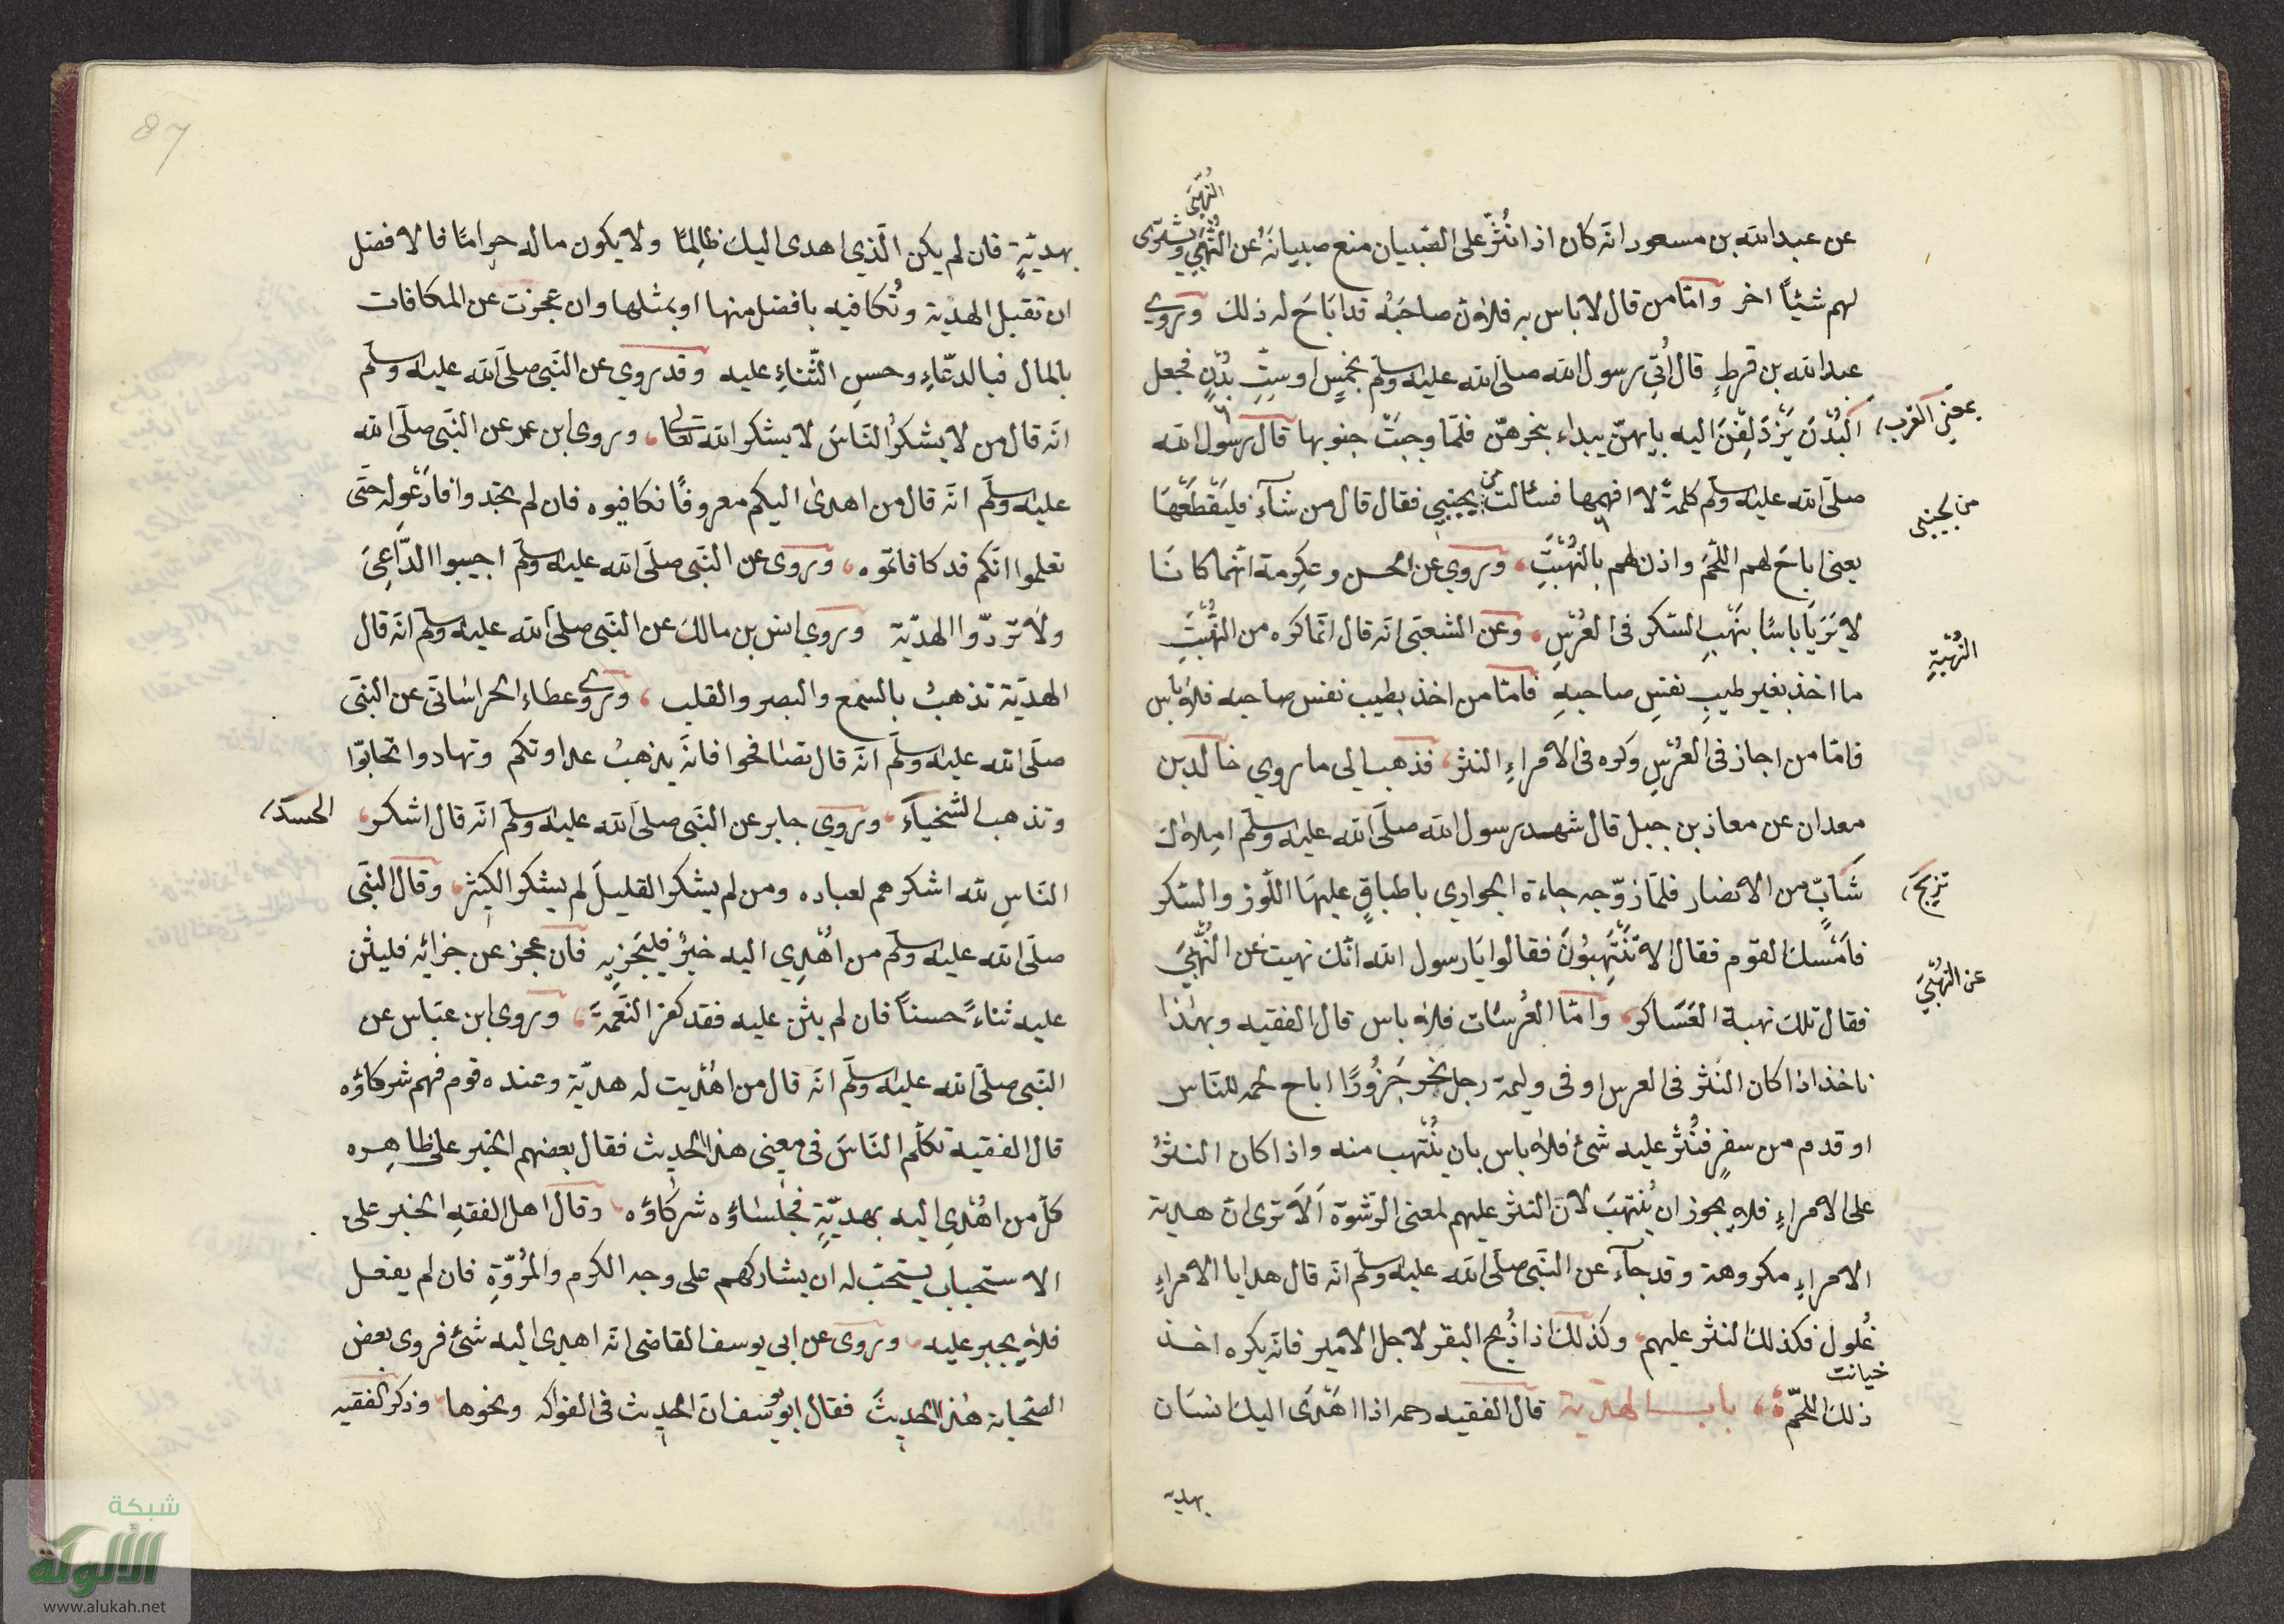 النُّهْبَى
عن عبد الله بن مسعود انّه كان اذا نُثِرَ على الصّبيان منع صبيانَهُ عن النُّهْبَى ويشترى
لهم شيئًا اخر وامّا من قال لا باس به فلانّ صاحبَهُ قد اَبَاحَ له ذلك وروي
عبد الله بن قرطٍ قال اُتي رسول الله صلى الله عليه وسلم بخمسٍ او ستِّ بُدْنٍ فجعل
البُدْنَ يَزْدَلِفْنَ اليه بايهنّ يبداء بنحرهنّ فلمّا وجبَتْ جنوبها قال رسول الله
بمعني القرب
صلى الله عليه وسلم كلمةً لا افهمها فسئالت من يجنبي فقال قال من شآء فليَقْطَعْهَا
من بجنبى
يعنى اباحَ لهم اللّحمَ واذن لهم بالنُّهْبَتِ، وروي عن الحسن وعكرمة انّهما كانَا
لا يَرَيَا باسًا بنَهْبِ السّكر فى العُرْسِ، وعن الشعبى انّه قال انّما كره من النُّهْبَتِ
النُّهْبَةِ
ما اخذ بغير طيبِ نفسِ صاحبهِ فامّا من اخذ بطيب نفس صاحبه فلا باس
فامّا من اجاز فى العُرْسِ وكره فى الامراءِ النثر، فذهب الى ما روي خالد بن
معدان عن معاذ بن جبل قال شهد رسول الله صلى الله عليه وسلم املاك
شَابٍّ من الانصار فلمّا زوّجه جاءة الجواري باطباقٍ عليهَا اللّوز والسّكر
تزيج
فاَمْسك القوم فقال الا تَنْتَهِبُونَ فقالوا يَا رسول الله انّك نهيت عن النُّهْبَى
عن النُّهْبَى
فقال تلك نهبة العَسَاكر، وامّا العُرسَات فلا باس قال الفقيه وبهٰذا
ناخذ اذا كان النّثر فى العرس او فى وليمة رجل نحر جَزُورًا اباح لحمه للنّاس
او قدم من سفرٍ فنُثر عليه شئ فلا باس بان يُنْتهب منه واذا كان النثرُ
على الامراءِ فلا يجوز ان يُنتهبَ لانّ النثر عليهم لمعنى الرّشوة اَلَا ترى انّ هدية
الامراءِ مكروهة وقد جآء عن النّبى صلى الله عليه وسلم انّه قال هدايا الامراءِ
غُلول فكذلك النثر عليهم، وكذلك اذا ذُبح البقر لاجل الامير فانّه يكره اخذ
خيانت
ذلك اللحمِ، باب الهدية قال الفقيه رحمه اذا اهْدَى اليك انسَان
بهديه
87
بهديّةٍ فان لم يكن الّذي اهدى اليك ظالِمًا ولا يكون ماله حرامًا فالافضل
ان تقبل الهديّة وتُكافيه بافضل منها او بمثلها وان عجزت عن المكافات
بالمال فبالدّعَاءِ وحسنِ الثّناءِ عليه وقد روي عن النّبى صلى الله عليه وسلم
انّه قال من لا يشكرُ النّاسَ لا يشكر الله تعالى، وروى ابن عمر عن النّبى صلى الله
عليه وسلم انّه قال من اهدىٰ اليكم معروفًا فكافيوه فان لم تجدوا فادْعُو له حتّى
تعلموا انّكم قد كافاتموه، وروى عن النّبى صلى الله عليه وسلم اجيبوا الدَّاعِىَ
ولا تردّوا الهديّة وروي انس بن مالك عن النّبى صلى الله عليه وسلم انّه قال
الهديّة تذهبُ بالسّمع والبصر والقلب، وروى عطاء الخراسَانى عن النبى
صلى الله عليه وسلم انّه قال تصَافحوا فانّه يذهبُ عداوتكم وتهادوا تحابّوا
وتذهب الشّحناءَ، وروي جابر عن النّبى صلى الله عليه وسلم انّه قال اشكر،
الحسد
النّاسِ لله اشكرهم لعباده ومن لم يشكر القليلَ لم يشكر الكثير، وقال النبى
صلى الله عليه وسلم من اهْدِي اليه خيرٌ فليَجْزِيهِ فان عجز عن جزائه فليثن
عليه ثناءً حسنًا فان لم يثن عليه فقد كفر النّعمةَ، وروى ابن عبّاس عن
النّبى صلى الله عليه وسلم انّه قال من اهْديت له هديّة وعنده قوم فهم شركاؤه
قال الفقيه تكلّم النّاسَ فى معنى هذا الحديث فقال بعضهم الخبر على ظاهِره
كلّ من اهْدِى اليه بهديّةٍ فجلسَاؤه شركاؤه، وقال اهل الفقهِ الخبر على
الاستحباب يستحبّ له ان يشاركهم على وجه الكرم والمُرُوّةِ فان لم يفعل
فلا يجبر عليه، وروى عن ابى يوسف القاضى انّه اهدى اليه شئ فروى بعض
الصّحابة هٰذا الحديثَ فقال ابو يوسف انّ الحديث فى الفواكه ونحوها، وذكر الفقيه
شبكة
الألوكة
www.alukah.net